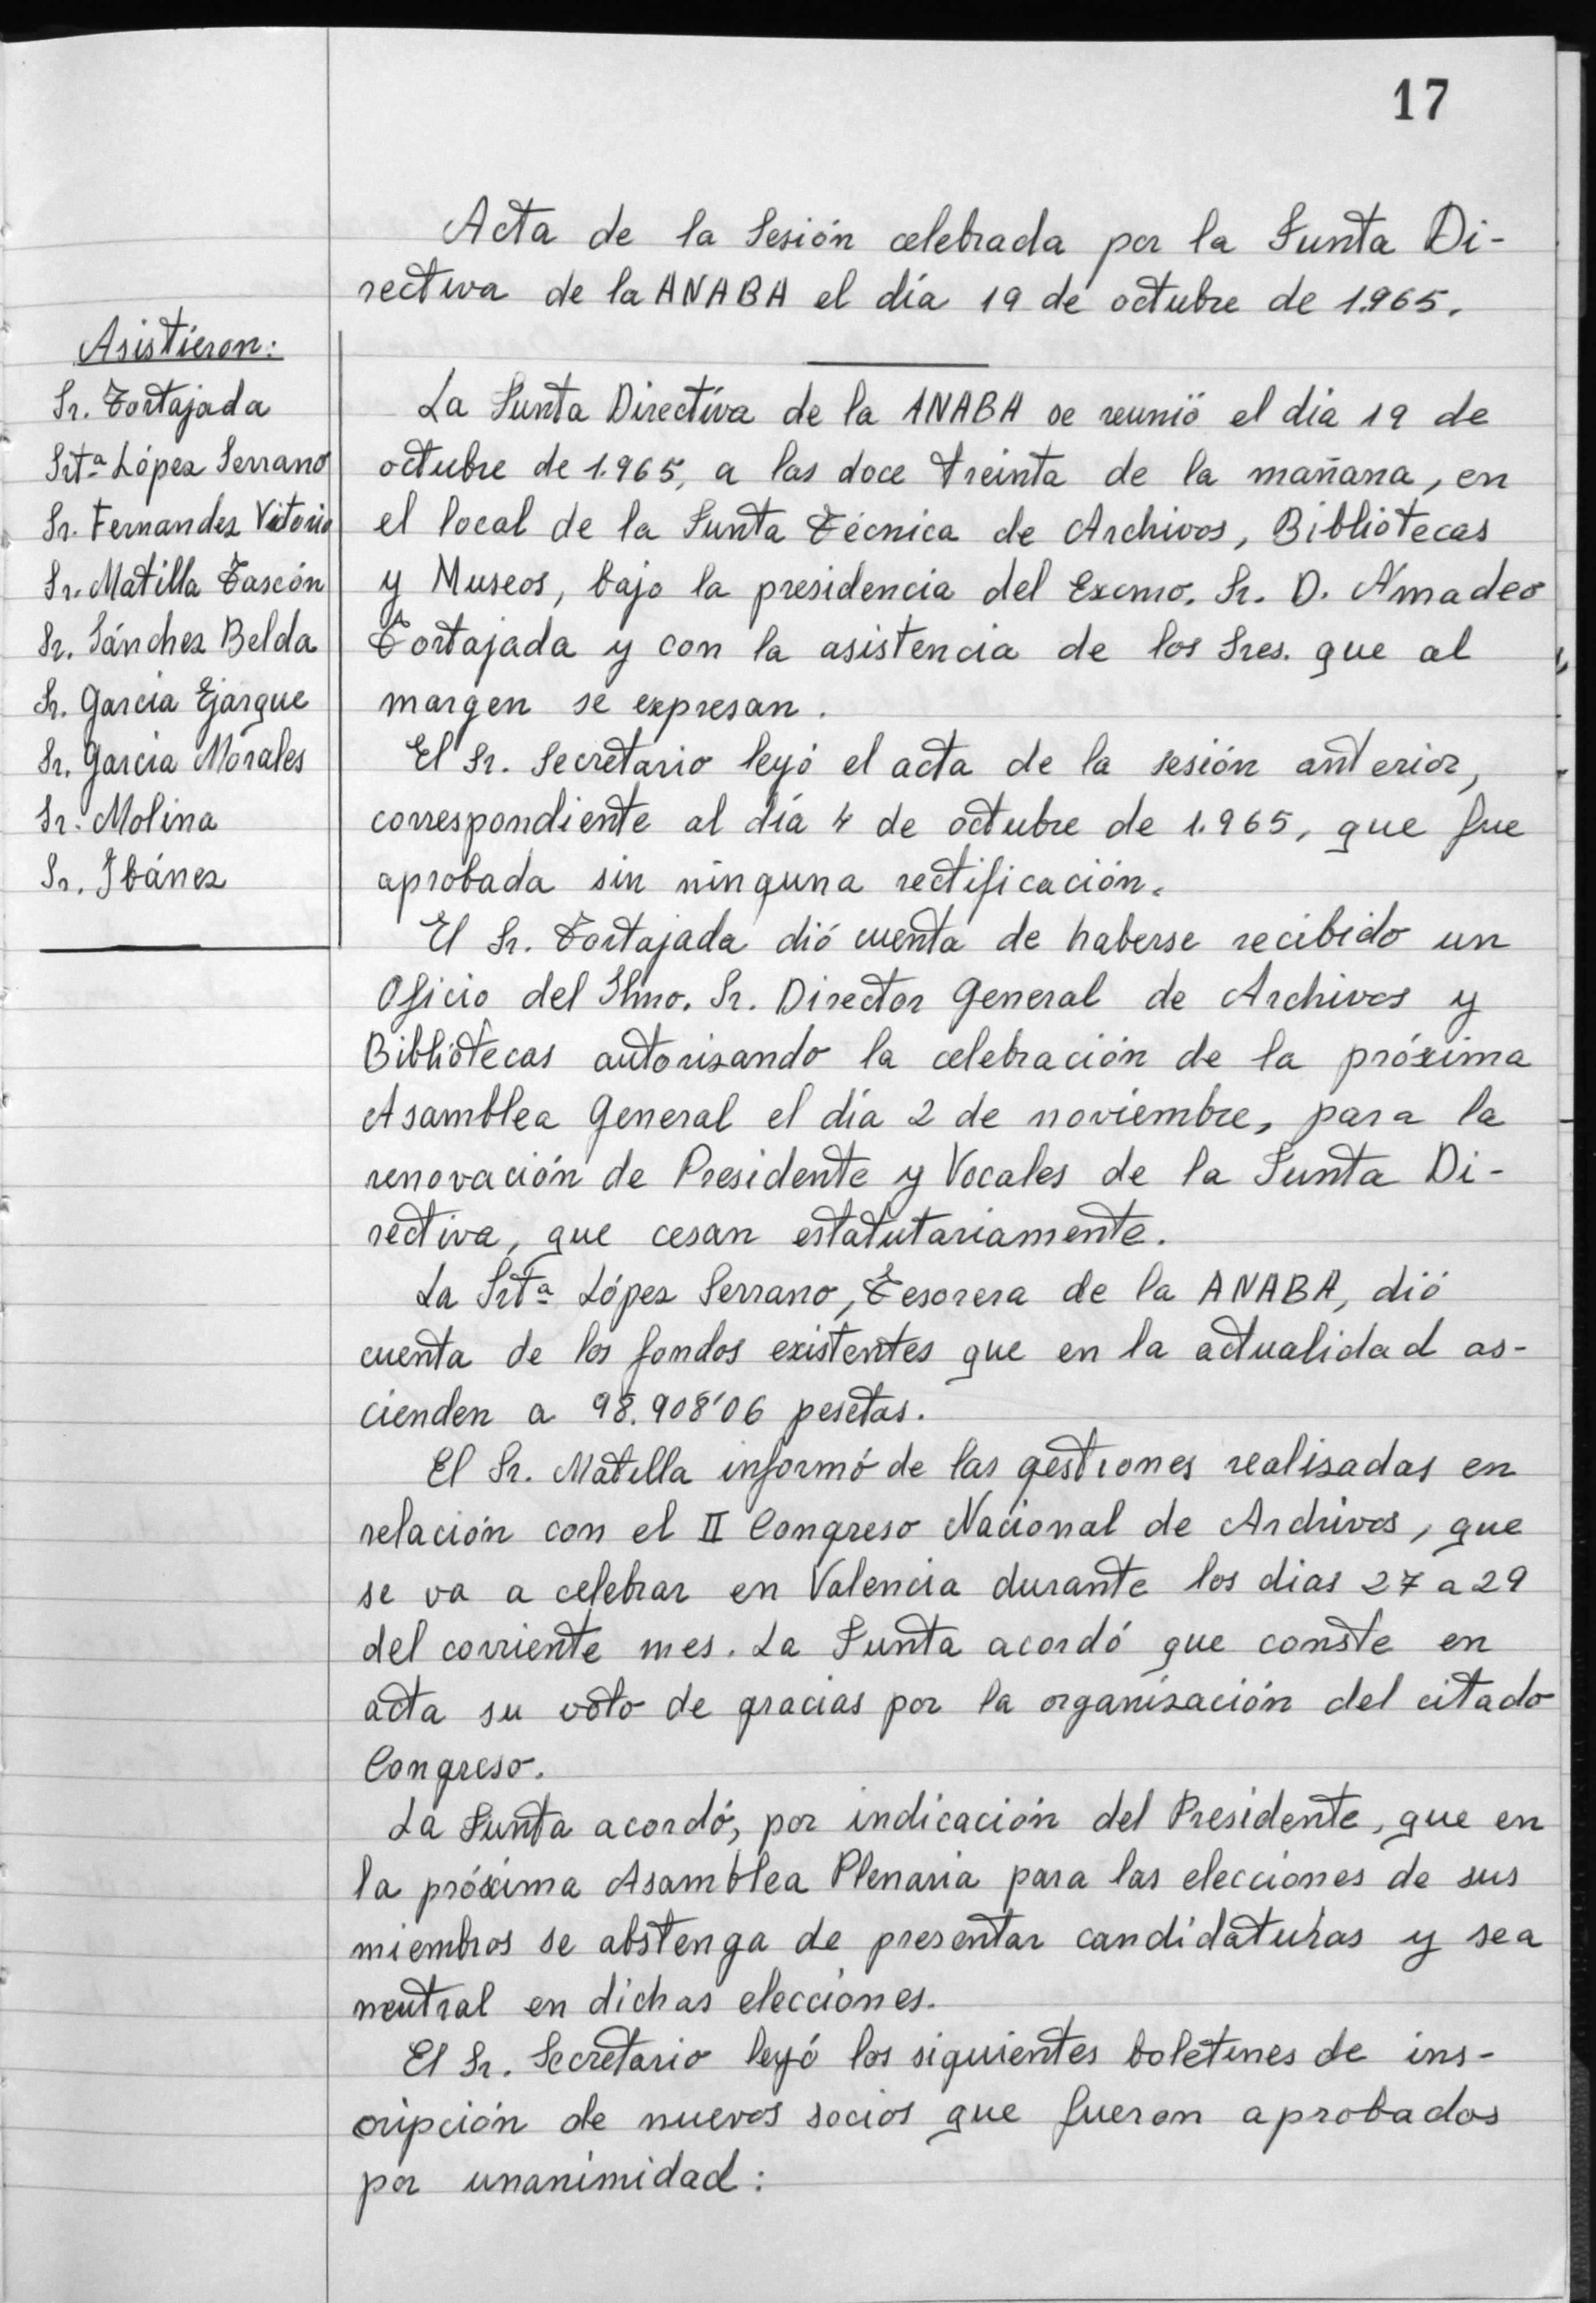 17
Acta de la Sesión celebrada por la Junta Di-
rectiva de la ANABA el día 19 de octubre de 1.965.
Asistieron:
Sr. Tortajada
Srtª López Serrano
Sr. Fernandez Vitorio
Sr. Matilla Tascón
Sr. Sánchez Belda
Sr. García Ejarque
Sr. García Morales
Sr. Molina
Sr. Ibánez
La Junta Directiva de la ANABA se reunió el día 19 de
octubre de 1.965, a las doce treinta de la mañana, en
el local de la Junta Técnica de Archivos, Bibliotecas
y Museos, bajo la presidencia del Excmo. Sr. D. Amadeo
Tortajada y con la asistencia de los Sres. que al
margen se expresan.
El Sr. Secretario leyó el acta de la sesión anterior,
correspondiente al día 4 de octubre de 1.965, que fue
aprobada sin ninguna rectificación.
El Sr. Tortajada dió cuenta de haberse recibido un
Oficio del Ilmo. Sr. Director General de Archivos y
Bibliotecas autorizando la celebración de la próxima
Asamblea General el día 2 de noviembre, para la
renovación de Presidente y Vocales de la Junta Di-
rectiva, que cesan estatutariamente.
La Srtª López Serrano, Tesorera de la ANABA, dió
cuenta de los fondos existentes que en la actualidad as-
cienden a 98.908'06 pesetas.
El Sr. Matilla informó de las gestiones realizadas en
relación con el II Congreso Nacional de Archivos, que
se va a celebrar en Valencia durante los dias 27 a 29
del corriente mes. La Junta acordó que conste en
acta su voto de gracias por la organización del citado
Congreso.
La Junta acordó, por indicación del Presidente, que en
la próxima Asamblea Plenaria para las elecciones de sus
miembros se abstenga de presentar candidaturas y sea
neutral en dichas elecciones.
El Sr. Secretario leyó los siguientes boletines de ins-
cripción de nuevos socios que fueron aprobados
por unanimidad: